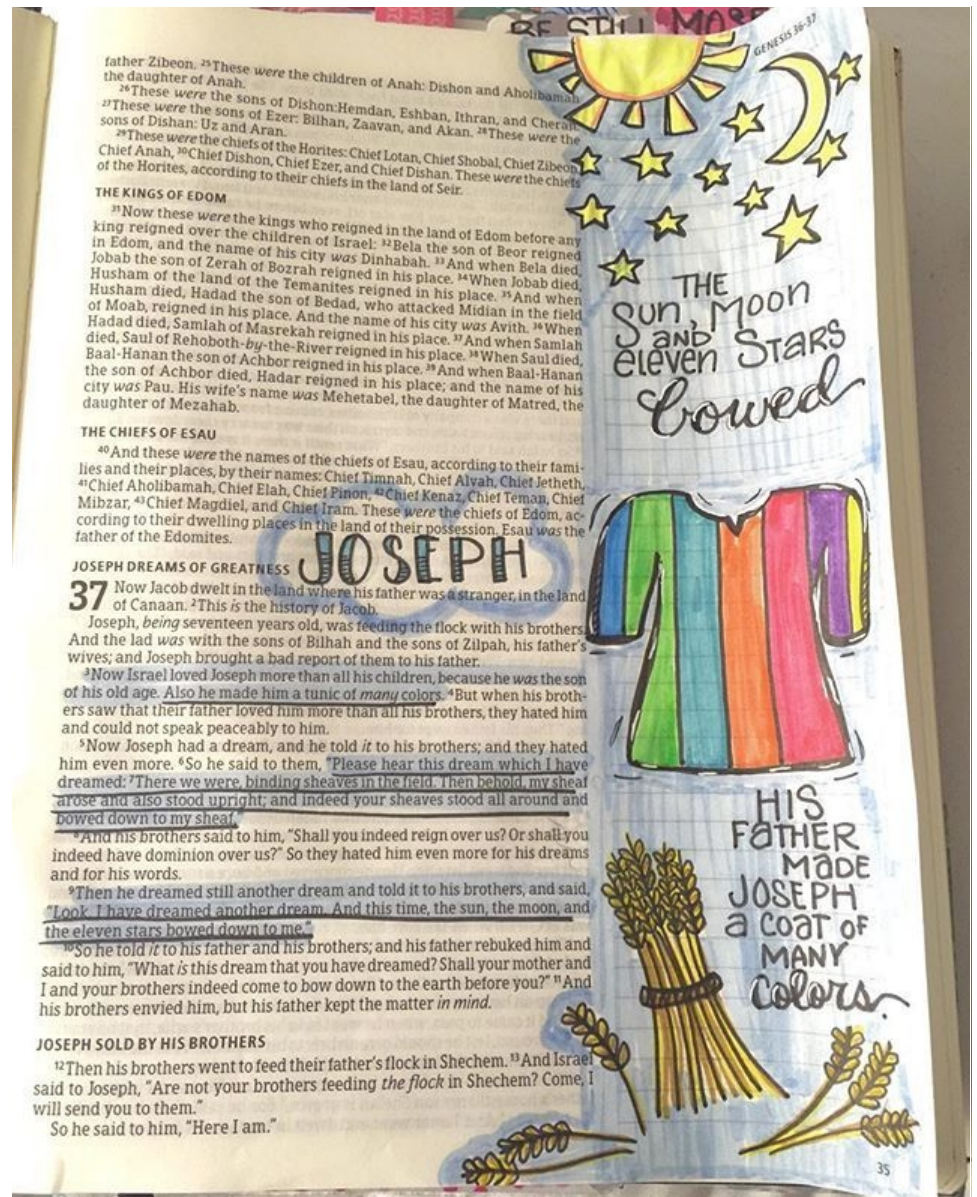 BE STILL
GENESIS 36-37
father Zibeon. 25These were the children of Anah: Dishon and Aholibamah
the daughter of Anah.
26These were the sons of Dishon:Hemdan, Eshban, Ithran, and Cheran.
27These were the sons of Ezer: Bilhan, Zaavan, and Akan. 28These were the
sons of Dishan: Uz and Aran.
29These were the chiefs of the Horites: Chief Lotan, Chief Shobal, Chief Zibeon,
Chief Anah, 30Chief Dishon, Chief Ezer, and Chief Dishan. These were the chiefs
of the Horites, according to their chiefs in the land of Seir.
THE KINGS OF EDOM
31Now these were the kings who reigned in the land of Edom before any
king reigned over the children of Israel: 32Bela the son of Beor reigned
in Edom, and the name of his city was Dinhabah. 33And when Bela died,
Jobab the son of Zerah of Bozrah reigned in his place. 34When Jobab died,
Husham of the land of the Temanites reigned in his place. 35And when
Husham died, Hadad the son of Bedad, who attacked Midian in the field
of Moab, reigned in his place. And the name of his city was Avith. 36When
Hadad died, Samlah of Masrekah reigned in his place. 37And when Samlah
died, Saul of Rehoboth-by-the-River reigned in his place. 38When Saul died,
Baal-Hanan the son of Achbor reigned in his place. 39And when Baal-Hanan
the son of Achbor died, Hadar reigned in his place; and the name of his
city was Pau. His wife's name was Mehetabel, the daughter of Matred, the
daughter of Mezahab.
THE CHIEFS OF ESAU
40And these were the names of the chiefs of Esau, according to their fami-
lies and their places, by their names: Chief Timnah, Chief Alvah, Chief Jetheth,
41Chief Aholibamah, Chief Elah, Chief Pinon, 42Chief Kenaz, Chief Teman, Chief
Mibzar, 43Chief Magdiel, and Chief Iram. These were the chiefs of Edom, ac-
cording to their dwelling places in the land of their possession. Esau was the
father of the Edomites.
JOSEPH
JOSEPH DREAMS OF GREATNESS
37 Now Jacob dwelt in the land where his father was a stranger, in the land
of Canaan. 2This is the history of Jacob.
Joseph, being seventeen years old, was feeding the flock with his brothers.
And the lad was with the sons of Bilhah and the sons of Zilpah, his father's
wives; and Joseph brought a bad report of them to his father.
3Now Israel loved Joseph more than all his children, because he was the son
of his old age. Also he made him a tunic of many colors. 4But when his broth-
ers saw that their father loved him more than all his brothers, they hated him
and could not speak peaceably to him.
5Now Joseph had a dream, and he told it to his brothers; and they hated
him even more. 6So he said to them, "Please hear this dream which I have
dreamed: 7There we were, binding sheaves in the field. Then behold, my sheaf
arose and also stood upright; and indeed your sheaves stood all around and
bowed down to my sheaf."
8And his brothers said to him, "Shall you indeed reign over us? Or shall you
indeed have dominion over us?" So they hated him even more for his dreams
and for his words.
9Then he dreamed still another dream and told it to his brothers, and said,
"Look, I have dreamed another dream. And this time, the sun, the moon, and
the eleven stars bowed down to me."
10So he told it to his father and his brothers; and his father rebuked him and
said to him, "What is this dream that you have dreamed? Shall your mother and
I and your brothers indeed come to bow down to the earth before you?" 11And
his brothers envied him, but his father kept the matter in mind.
JOSEPH SOLD BY HIS BROTHERS
12Then his brothers went to feed their father's flock in Shechem. 13And Israel
said to Joseph, "Are not your brothers feeding the flock in Shechem? Come, I
will send you to them."
So he said to him, "Here I am."
THE
Sun, Moon
AND
eleven STARS
bowed
HIS
FATHER
MADE
JOSEPH
a COAT OF
MANY
Colors.
35